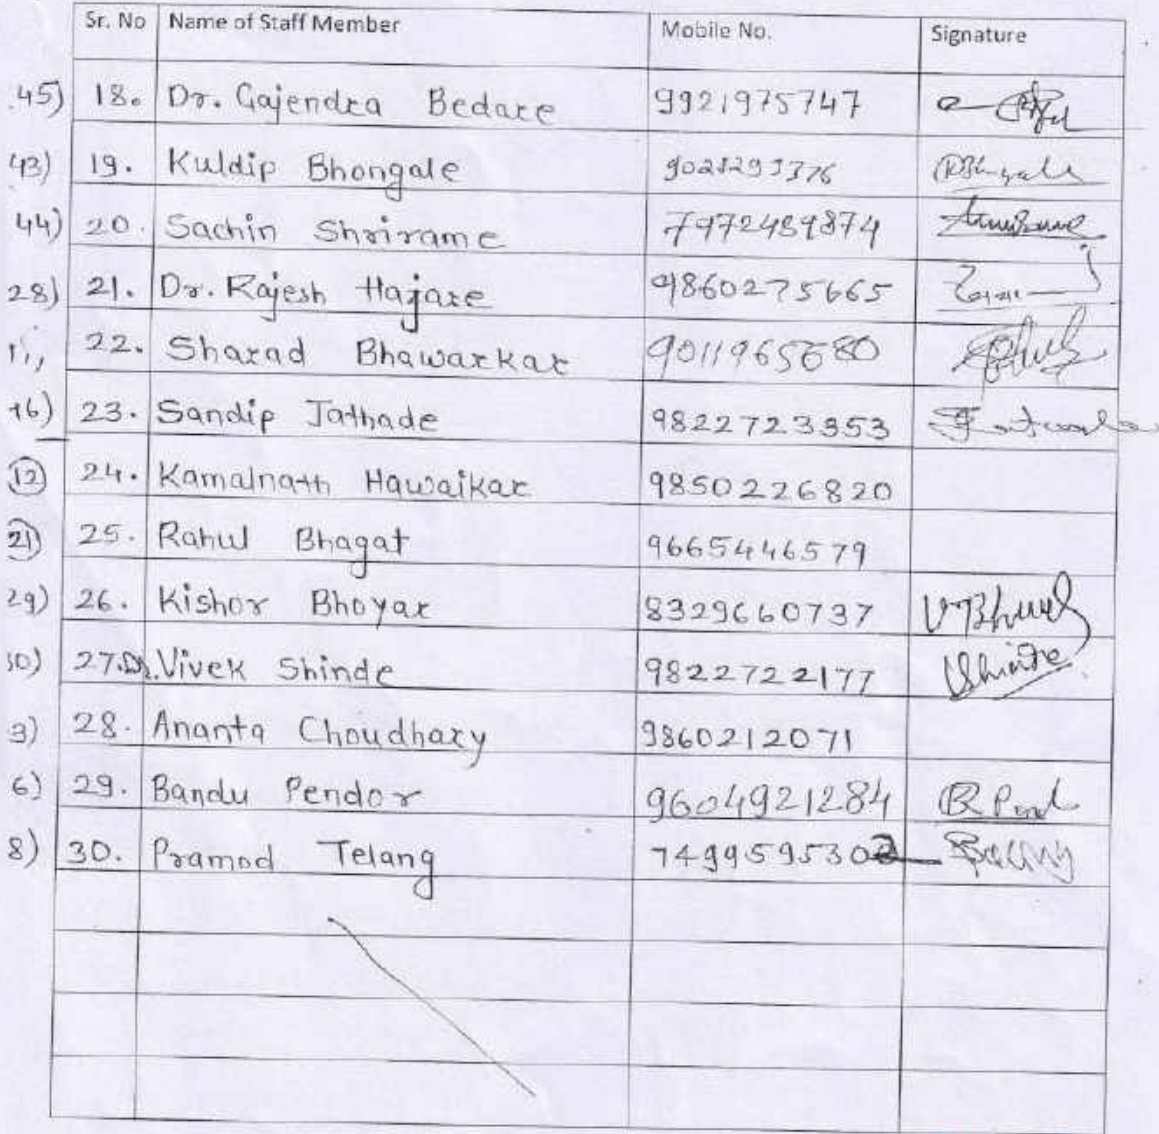 Sr. No Name of Staff Member Mobile No. Signature
45) 18. Dr. Gajendra Bedare 9921975747
43) 19. Kuldip Bhongale
44) 20. Sachin Shrirame 7972489874
28) 21. Dr. Rajesh Hajare 9860275665
22. Sharad Bhawarkar 9011965680
16) 23. Sandip Jathade 9822723353
12 24. Kamalnath Hawaikar 9850226820
21) 25. Rahul Bhagat 9665446579
29) 26. Kishor Bhoyar 8329660737
30) 27. Dr. Vivek Shinde 9822722177 VShinde
3) 28. Ananta Choudhary 9860212071
6) 29. Bandu Pendor 9604921284
8) 30. Pramod Telang 7499595302